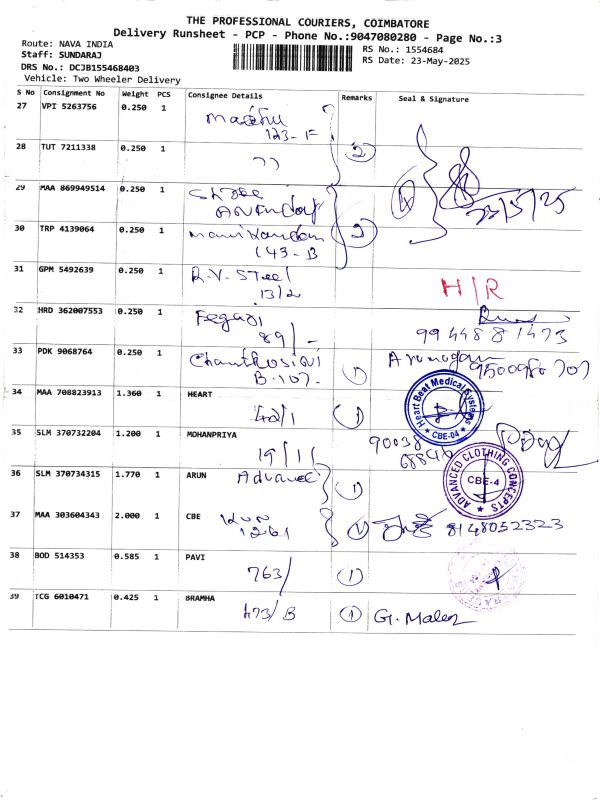 THE PROFESSIONAL COURIERS, COIMBATORE
Delivery Runsheet - PCP - Phone No.:9047080280 - Page No.:3
Route: NAVA INDIA
RS No.: 1554684
Staff: SUNDARAJ
RS Date: 23-May-2025
DRS No.: DCJB155468403
Vehicle: Two Wheeler Delivery
S No Consignment No Weight PCS Consignee Details Remarks Seal & Signature
27 VPI 5263756 0.250 1
123-F
28 TUT 7211338 0.250 1 " 2
29 MAA 869949514 0.250 1 Shree
23/5/25
30 TRP 4139064 0.250 1 Manikandan
143-B
31 GPM 5492639 0.250 1 R.V. Steel H/R
13/2
32 HRD 362007553 0.250 1
89/- 9944881473
33 PDK 9068764 0.250 1 1 9500980707
B.107.
34 MAA 708823913 1.360 1 HEART Heart Beat Medical Systems
42/1 1 CBE-04
35 SLM 370732204 1.200 1 MOHANPRIYA 90038
19/11
36 SLM 370734315 1.770 1 ARUN Advance 1 ADVANCED CLOTHING CONCEPTS
CBE-4
37 MAA 303604343 2.000 1 CBE 8148052323
1261
38 BOD 514353 0.585 1 PAVI
763/ 1
39 TCG 6010471 0.425 1 BRAMHA
473/B 1